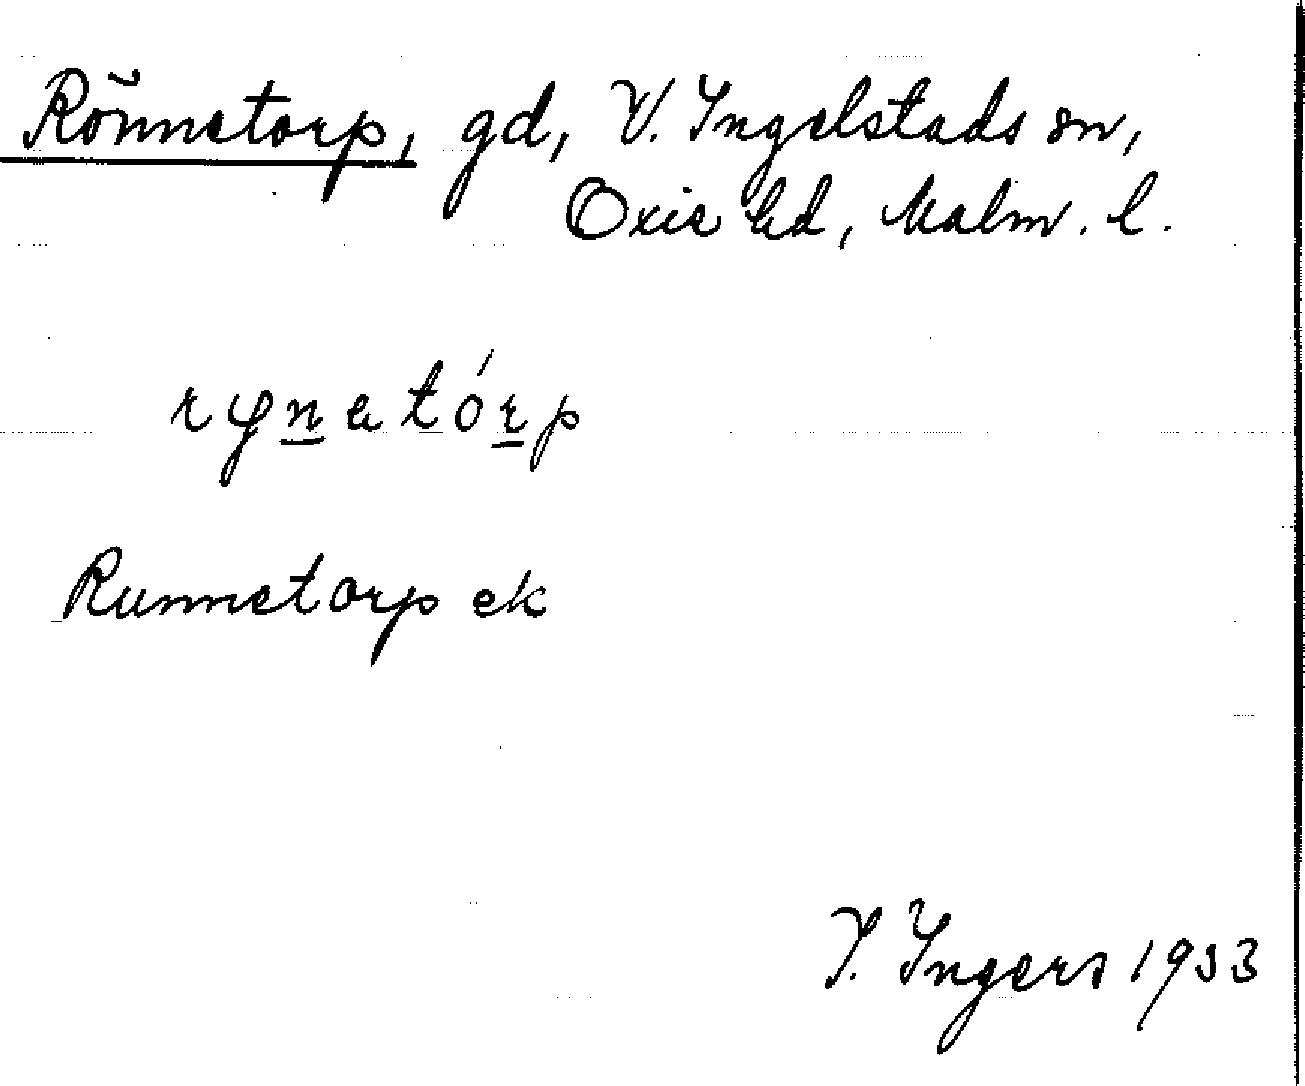 Rönnetorp, gd, V. Ingelstads sn,
Oxie hd, Malm. l.
Runnetorp ek
I. Ingers 1933